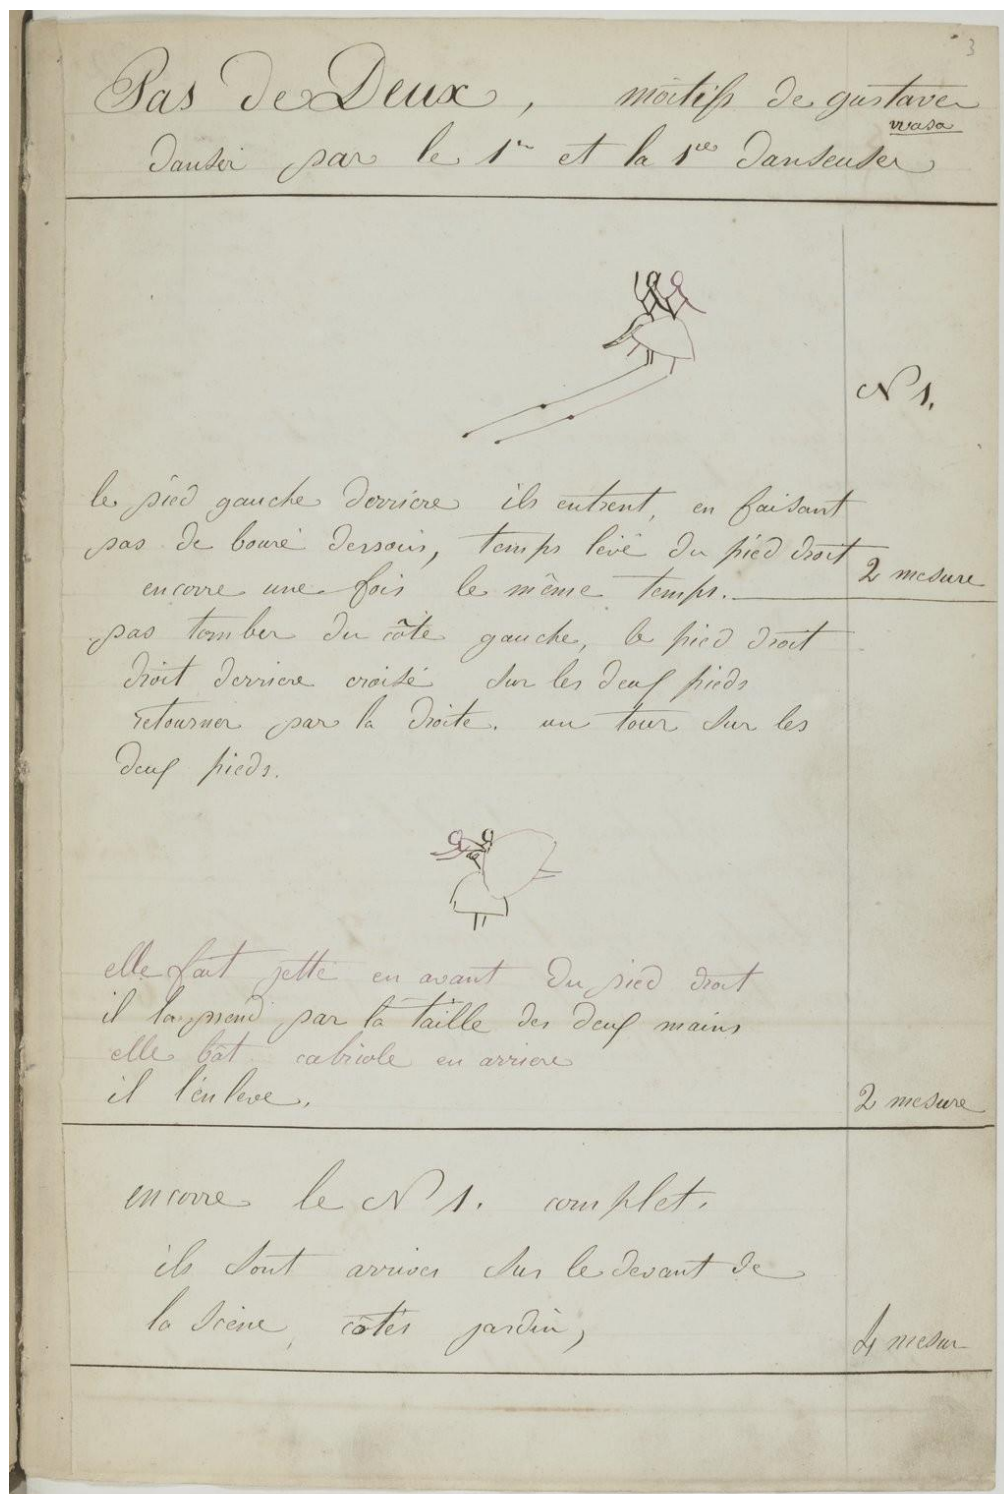 3
Pas de Deux, motifs de gustave
wasa
danser par le 1er et la 1re danseuse
N 1.
le pied gauche derriere ils entrent, en faisant
pas de bouré dessous, temps levé du pied droit
encorre une fois le même temps.
2 mesure
pas tomber du côté gauche, le pied droit
droit derriere croisé sur les deux pieds
retourner par la droite. un tour sur les
deux pieds.
elle fait jetté en avant du pied droit
il la prend par la taille des deux mains
elle bât cabriole en arriere
il l'enleve.
2 mesure
encorre le N 1. complet.
ils sont arrives sur le devant de
la scène, côtés jardin,
4 mesur